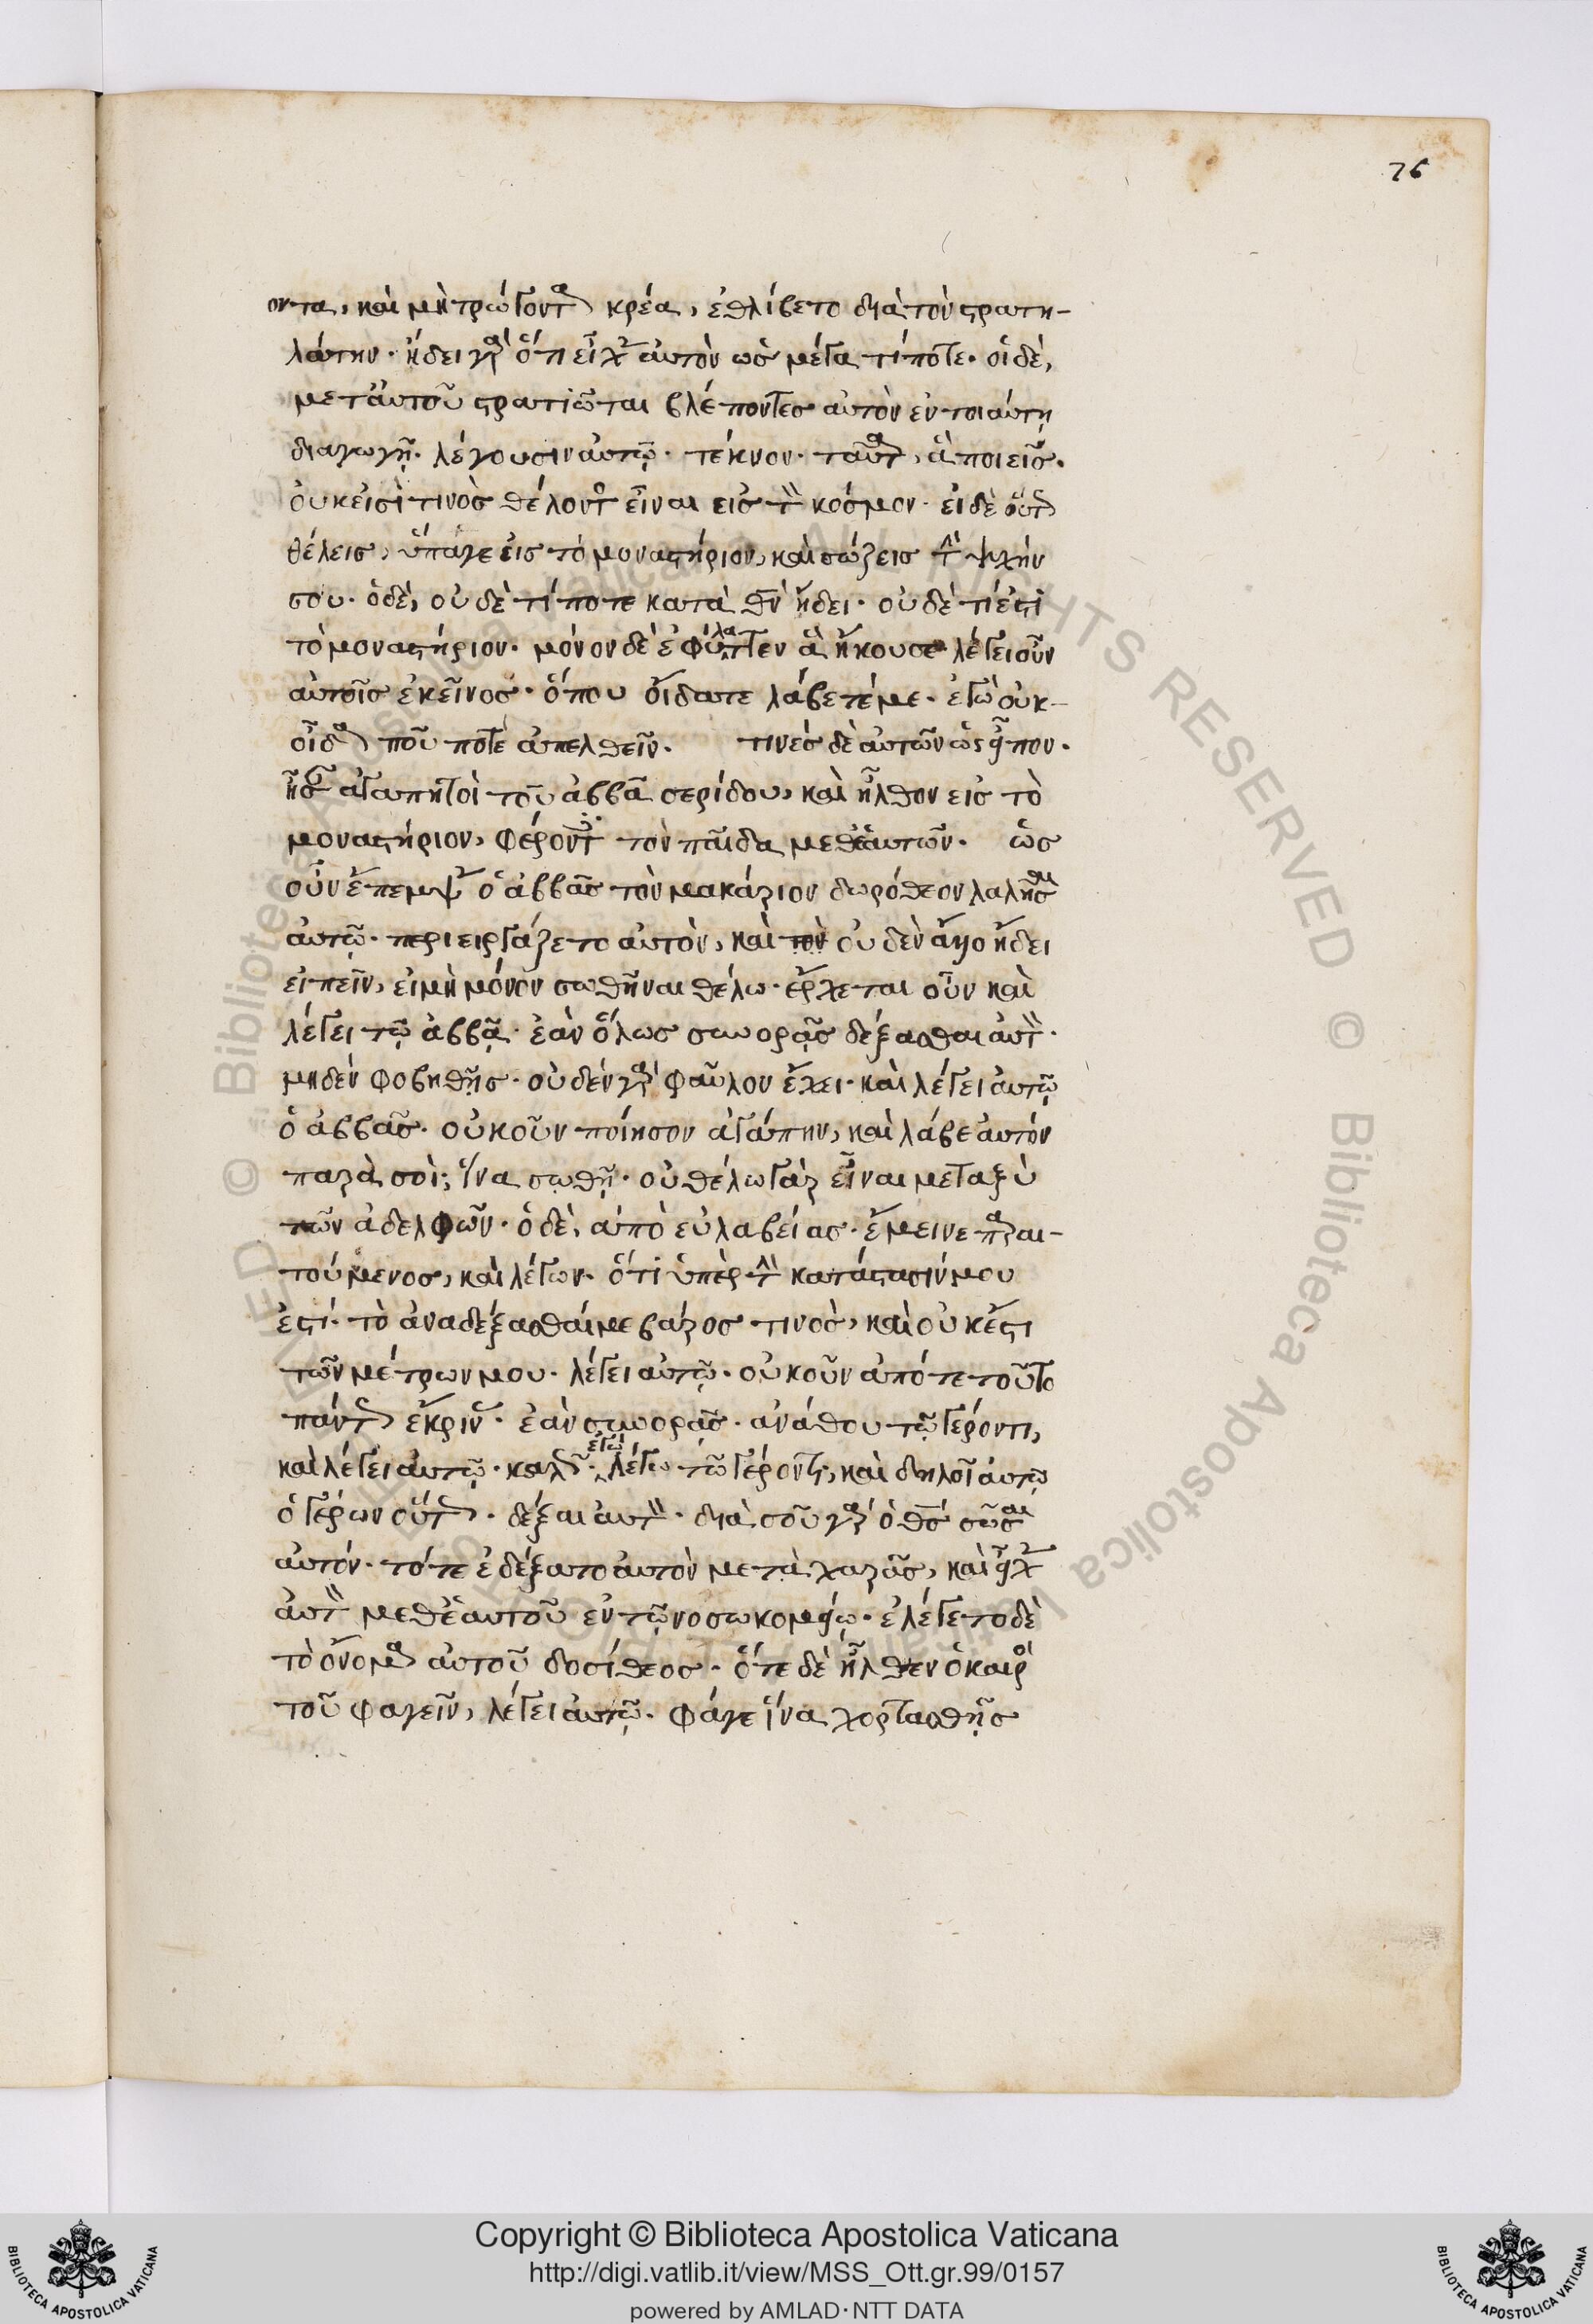 76
οντα, καὶ μὴ τρώγοντα κρέα, ἐθλίβετο διὰ τὸν στρατη-
λάτην· ἤδει γὰρ ὅτι εἶχεν αὐτὸν ὡς μέγα τί ποτε. οἱ δὲ,
μετ αὐτοῦ στρατιῶται βλέποντες αὐτὸν ἐν τοιαύτη
διαγωγῆ. λέγουσιν αὐτῶ. τέκνον. ταῦτα, ἃ ποιεῖς.
οὐκ εἰσί τινὸς θέλοντος εἶναι εἰς τὸν κόσμον· εἰ δὲ οὕτως
θέλεις, ὕπαγε εἰς τὸ μοναστήριον, καὶ σώζεις τὴν ψυχήν
σου. ὁ δὲ, οὐδὲ τί ποτε κατὰ θν ἤδει. οὐδὲ τί ἐστὶ
τὸ μοναστήριον. μόνον δὲ ἐφύλαττεν ἃ ἤκουσε λέγει οὖν
αὐτοῖς ἐκεῖνος. ὅπου οἴδατε λάβετέ με. ἐγὼ οὐκ-
οἶδα ποῦ ποτὲ ἀπελθεῖν. τινὲς δὲ αὐτῶν ὡς εἶπον.
ἦσαν ἀγαπητοὶ τοῦ ἀββᾶ σερίδου, καὶ ἦλθον εἰς τὸ
μοναστήριον, φέροντες τὸν παῖδα μεθ ἑαυτῶν. ὡς
οὖν ἔπεμψεν ὁ ἀββᾶς τὸν μακάριον δωρόθεον λαλῆσαι
αὐτῶ. περιειργάζετο αὐτὸν, καὶ τὸν οὐδὲν ἄλλο ἤδει
εἰπεῖν, εἰ μὴ μόνον σωθῆναι θέλω. ἔρχεται οὖν καὶ
λέγει τῶ ἀββᾶ. ἐὰν ὅλως συνορᾶς δέξασθαι αὐτὸν.
μηδὲν φοβηθῆς. οὐδὲν γὰρ φαῦλον ἔχει. καὶ λέγει αὐτῶ
ὁ ἀββᾶς. οὐκοῦν ποίησον ἀγάπην, καὶ λάβε αὐτόν
παρὰ σοὶ; ἵνα σωθῆ. οὐ θέλω γὰρ εἶναι μεταξὺ
τῶν ἀδελφῶν. ὁ δὲ, ἀπὸ εὐλαβείας. ἔμεινε παραι-
τούμενος, καὶ λέγων. ὅτι ὑπὲρ τὴν κατάστασίν μου
ἐστί. τὸ ἀναδέξασθαί με βάρος τινὸς, καὶ οὐκ ἔστι
τῶν μέτρων μου. λέγει αὐτῶ. οὐκοῦν ἀπό τε τοῦτο
πάντως ἔκρινεν. ἐὰν συνορᾶς. ἀνάθου τῶ γέροντι,
καὶ λέγει αὐτῶ. καλῶς. ἐγὼ λέγω τῶ γέροντι, καὶ δηλοῖ αὐτῶ
ὁ γέρων οὕτως. δέξαι αὐτὸν. διὰ σοῦ γὰρ ὁ θς σῶσαι
αὐτόν. τότε ἐδέξατο αὐτὸν μετὰ χαρᾶς, καὶ εἶχεν
αὐτὸν μεθ ἑαυτοῦ ἐν τῶ νοσωκομείω. ἐλέγετο δὲ
τὸ ὄνομα αὐτοῦ δοσίθεος. ὅτε δὲ ἦλθεν ὁ καιρὸς
τοῦ φαγεῖν, λέγει αὐτῶ. φάγε ἵνα χορτασθῆς
Copyright © Biblioteca Apostolica Vaticana
http://digi.vatlib.it/view/MSS_Ott.gr.99/0157
powered by AMLAD·NTT DATA
BIBLIOTECA APOSTOLICA VATICANA
BIBLIOTECA APOSTOLICA VATICANA